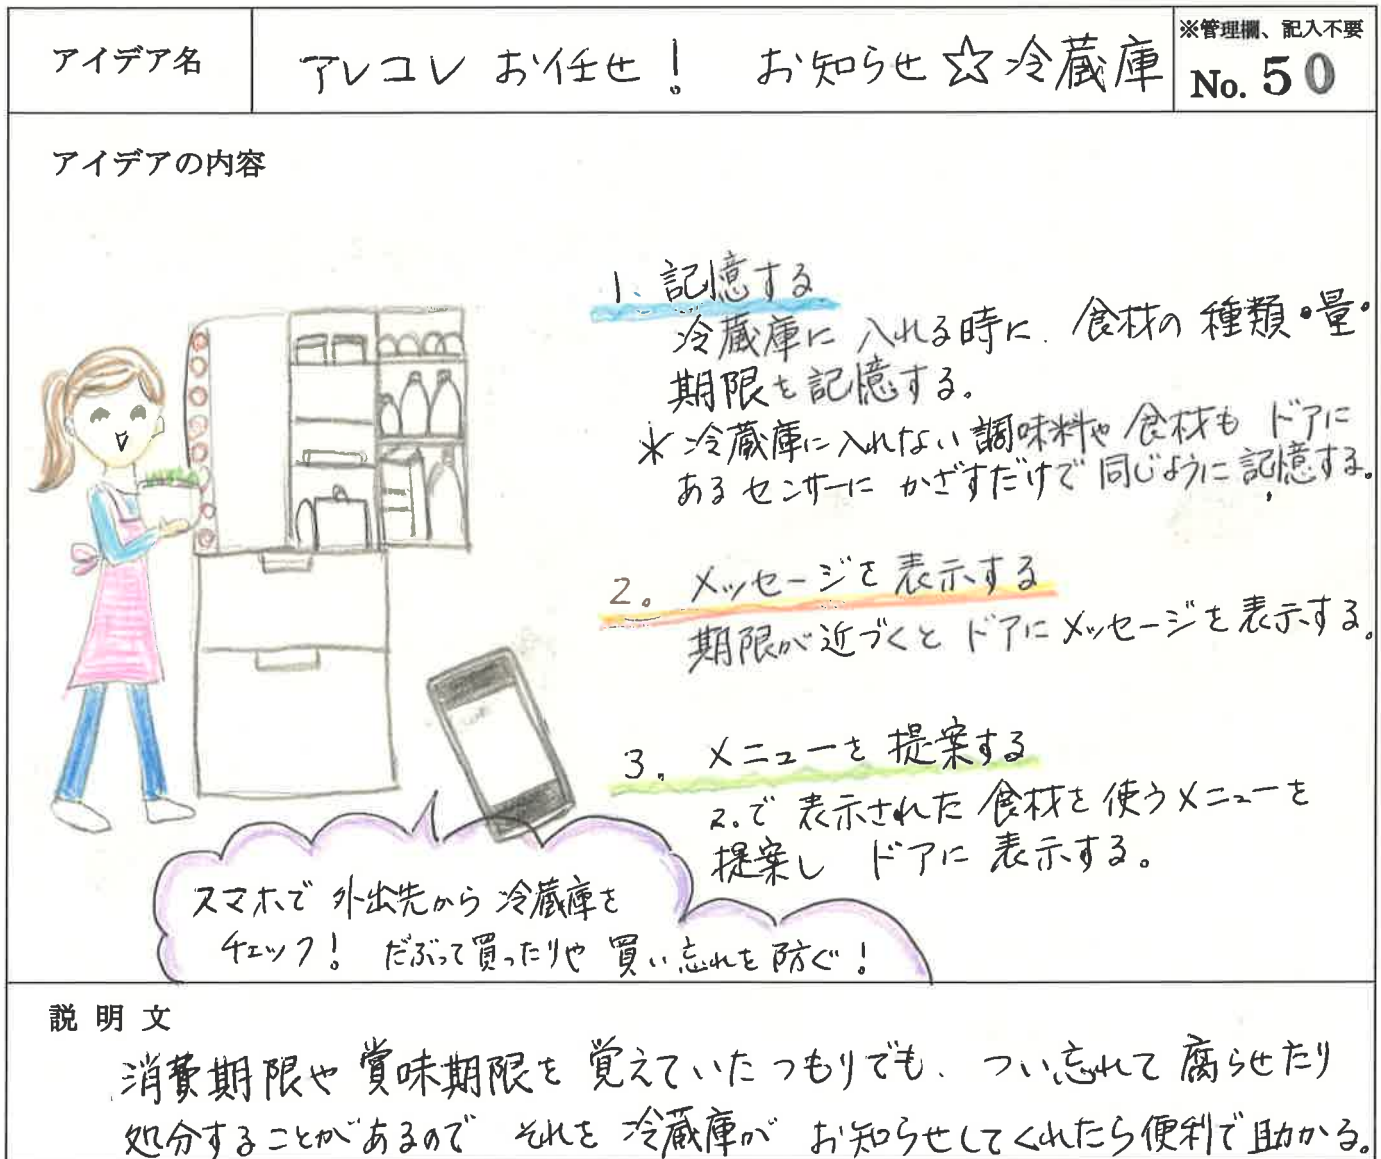 アイデア名
アレコレ お任せ! お知らせ☆冷蔵庫
※管理欄、記入不要
No. 50
アイデアの内容
1、記憶する
冷蔵庫に入れる時に、食材の種類・量・
期限を記憶する。
*冷蔵庫に入れない調味料や食材も ドアに
あるセンサーに かざすだけで 同じように記憶する。
2。 メッセージを表示する
期限が近づくと ドアにメッセージを表示する。
3。 メニューを提案する
2.で表示された食材を使うメニューを
提案し ドアに表示する。
スマホで外出先から冷蔵庫を
チェック! だぶって買ったりや買い忘れを防ぐ!
説明文
消費期限や賞味期限を覚えていたつもりでも、つい忘れて腐らせたり
処分することがあるので それを冷蔵庫が お知らせしてくれたら便利で助かる。